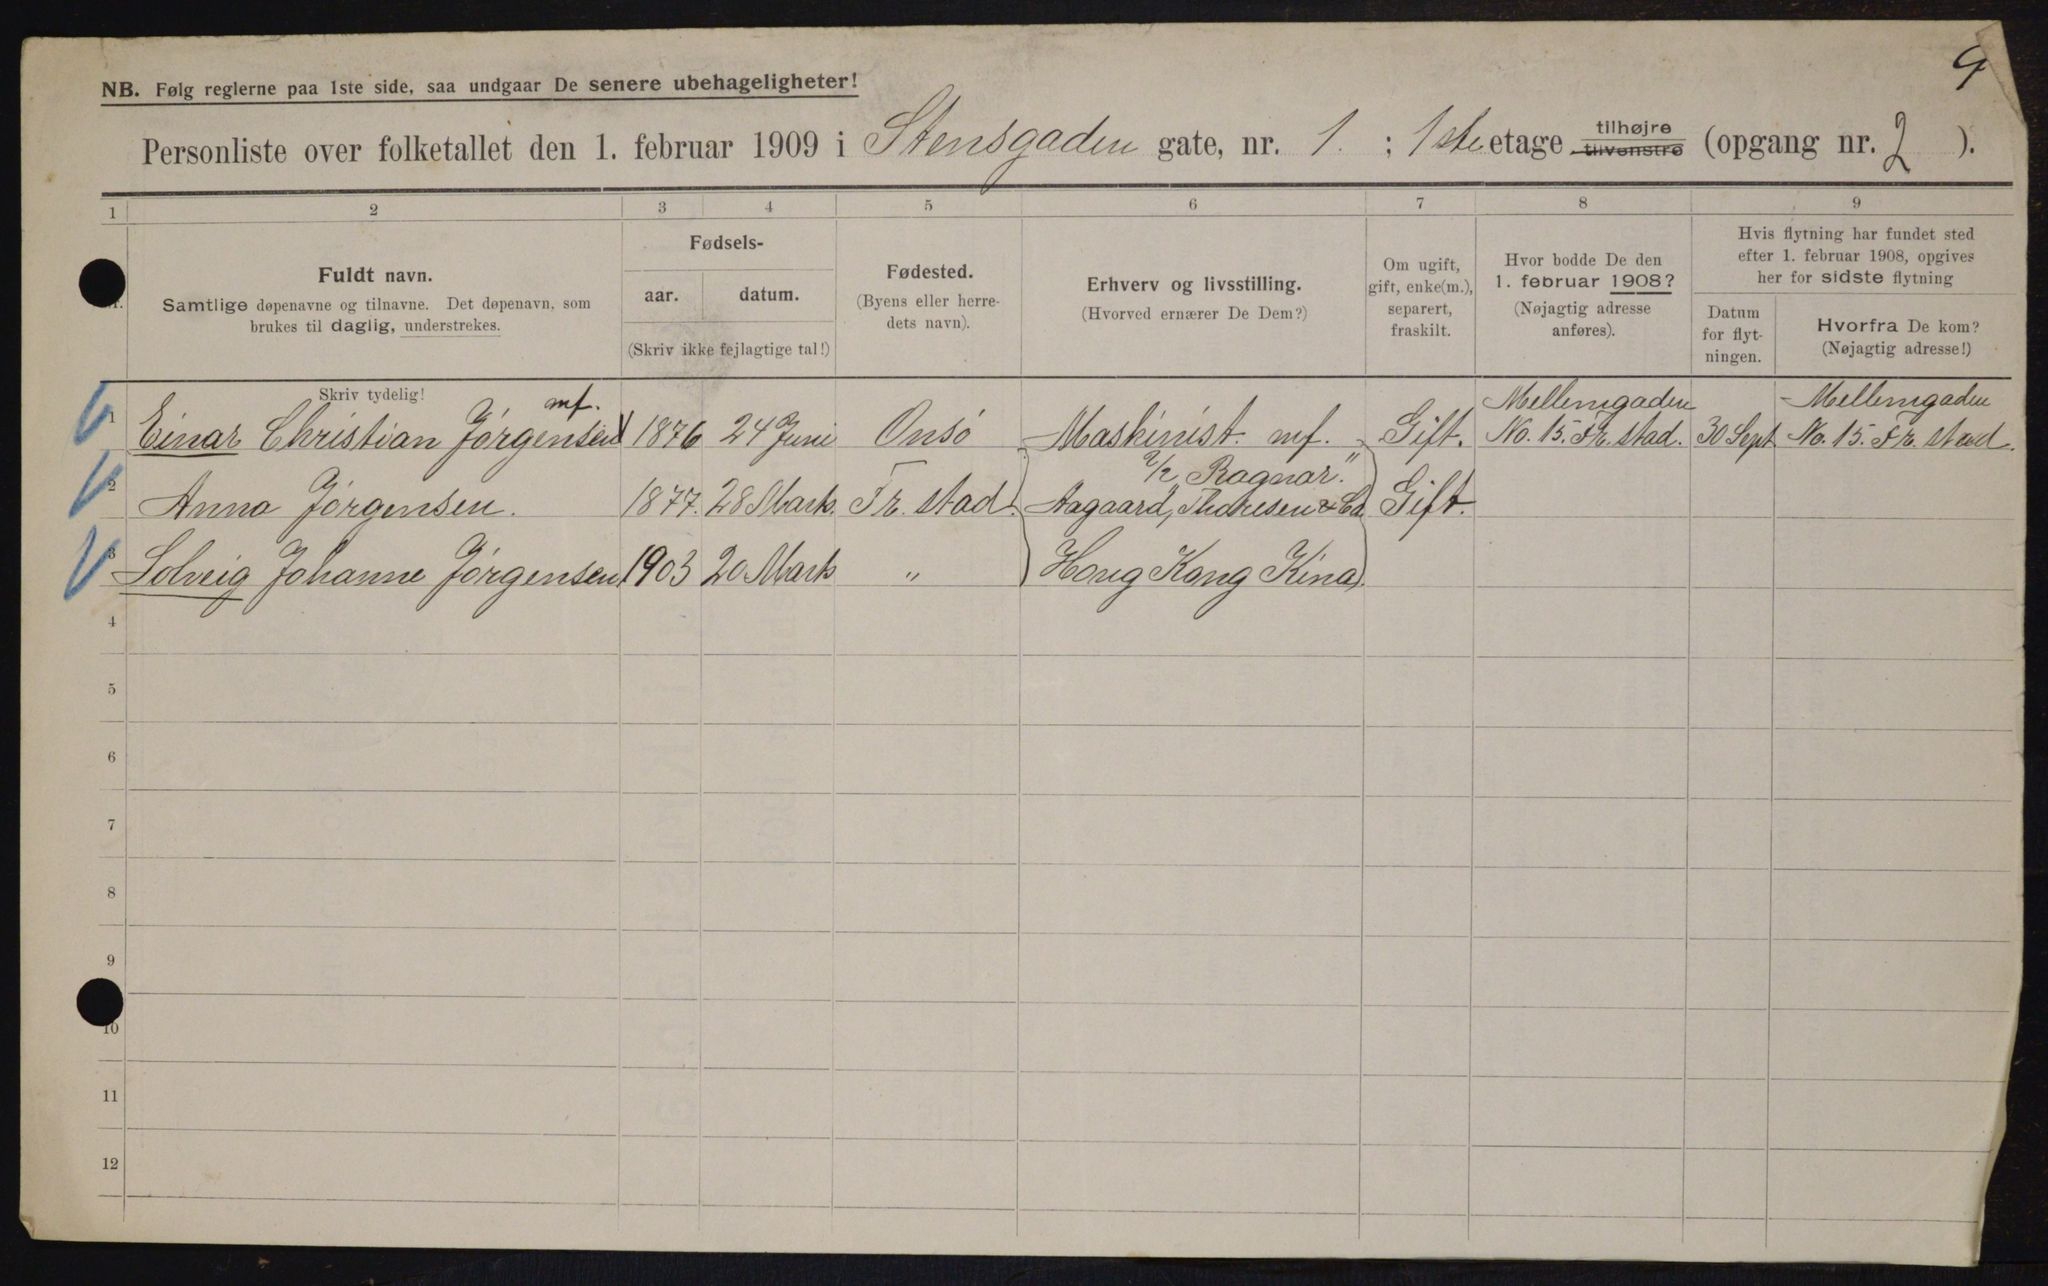 9
NB. Følg reglerne paa 1ste side, saa undgaar De senere ubehageligheter!
Personliste over folketallet den 1. februar 1909 i Stensgaden gate, nr. 1. ; 1ste etage tilhøjre tilvenstre (opgang nr. 2 ).
1 2 3 4 5 6 7 8 9
Fuldt navn.
Samtlige døpenavne og tilnavne. Det døpenavn, som
brukes til daglig, understrekes.
Skriv tydelig!
Fødsels-
aar. datum.
(Skriv ikke fejlagtige tal!)
Fødested.
(Byens eller herre-
dets navn).
Erhverv og livsstilling.
(Hvorved ernærer De Dem?)
Om ugift,
gift, enke(m.),
separert,
fraskilt.
Hvor bodde De den
1. februar 1908?
(Nøjagtig adresse
anføres).
Hvis flytning har fundet sted
efter 1. februar 1908, opgives
her for sidste flytning
Datum
for flyt-
ningen.
Hvorfra De kom?
(Nøjagtig adresse!)
mf. Mellemgaden Mellemgaden
1 Einar Christian Jörgensen 1876 24 Juni Onsö Maskinist. mf. Gift. No. 15. Fr. stad. 30 Sept No. 15. Fr. stad.
Ragnar."
2 Anna Jörgensen. 1877. 28 Marts. Fr. stad. Aagaard, Thoresen & Co. Gift.
3 Solveig Johanne Jörgensen 1903 20 Marts " Hong Kong Kina.
4
5
6
7
8
9
10
11
12